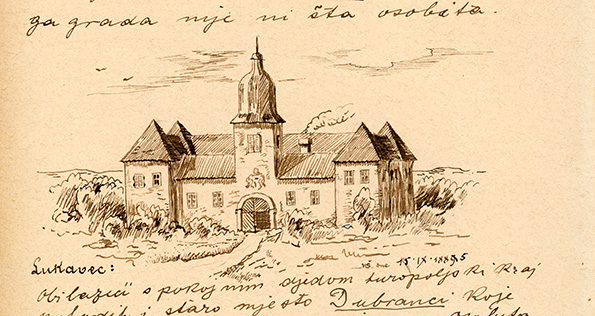 ga grada nije ni šta osobita.
15. IX. 1889
Lukavec:
Obilazići s pokojnim djedom turopoljski kraj
i staro mjesto Dubranci koje